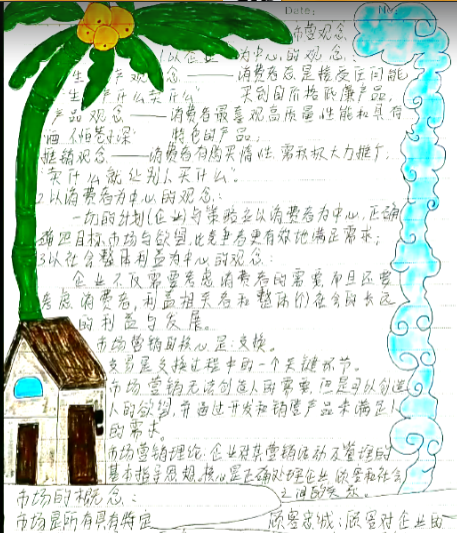 Date: No:
市营观念
1以企业为中心的观念:
生产观念——消费者总是接受任何能
生产什么卖什么 买到且价格低廉产品,
产品观念——消费者最喜观高质量性能和具有
酒不怕巷深 特色的产品,
推销观念——消费者有购买惰性,需积极大力推广,
"卖什么就让别人买什么"
2以消费者为中心的观念:
一切的计划(企业)与策略应以消费者为中心,正确
确定目标市场与欲望,比竞争者更有效地满足需求;
3以社会整体利益为中心的观念:
企业不仅需要考虑消费者的需要,而且还要
考虑消费者,利益相关者和整体的社会的长远
的利益与发展。
市场营销的核心是:交换。
交易是交换过程中的一个关键环节。
市场营销无法创造人的需要,但是可以创造
人的欲望,并通过开发和销售产品来满足人
的需求。
市场营销理论:企业对其营销活动及管理的
基本指导思想,核心是正确处理企业,顾客和社会
之间的关系。
市场的概念:
市场是所有具有特定
顾客忠诚:顾客对企业的